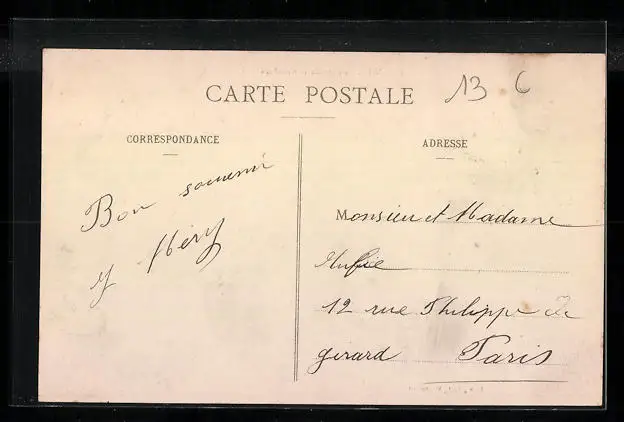 CARTE POSTALE
13 C
CORRESPONDANCE
ADRESSE
Bon souvenir
Y Héry
Monsieur et Madame
12 rue Philippe de
girard Paris